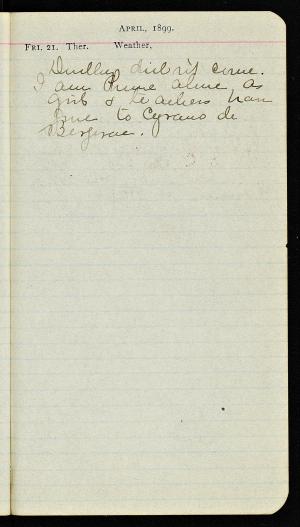 APRIL, 1899.
FRI. 21. Ther. Weather,
Dudley didn't come.
I am home alone as
girls & teachers have
gone to Cyrano de
Bergerac.